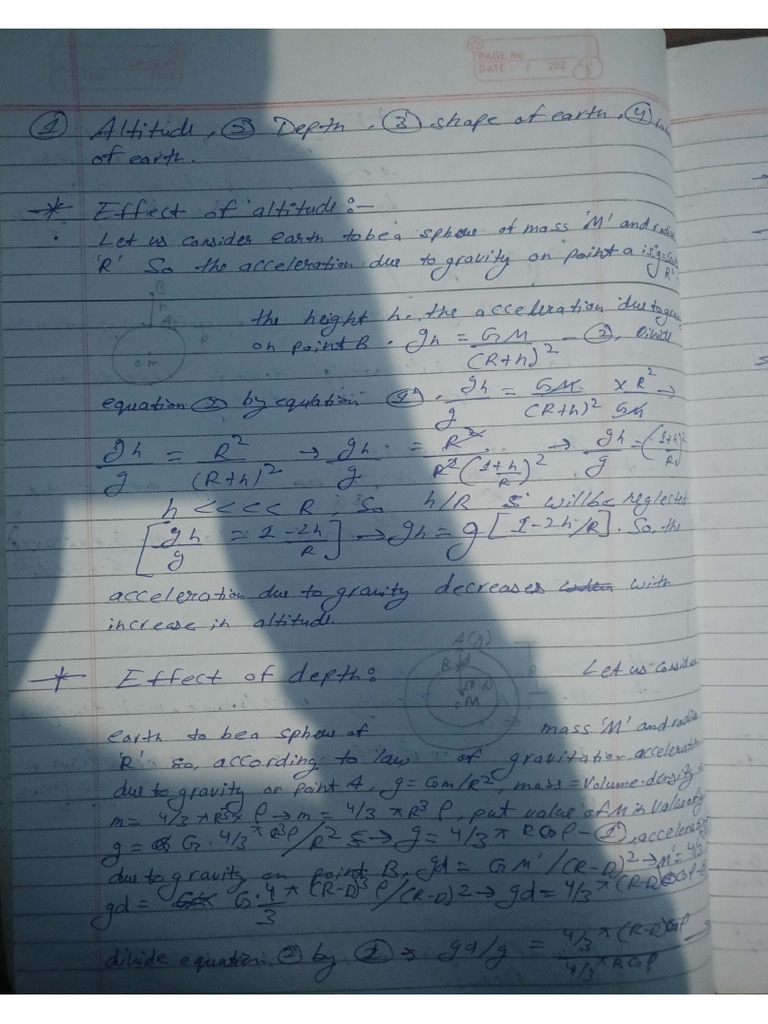 PAGE No
DATE: / 202
① Altitude, ② Depth, ③ shape of earth, ④
of earth.
* Effect of altitude:-
Let us consider earth to be a sphere of mass 'M' and radius
'R' So the acceleration due to gravity on point a is g=
B
h
A
R
m
the height h. the acceleration due to
on point B. gh = GM/(R+h)² - ②, Divide
equation ② by equation ①. gh/g = GM/(R+h)² × R²/GM →
gh/g = R²/(R+h)² → gh/g = R²/R²(1+h/R)² → gh/g = (1+h/R)²
h <<<< R, So h/R will be neglected
[gh/g = 1-2h/R] → gh = g[1-2h/R]. So, the
acceleration due to gravity decreases when with
increase in altitude.
* Effect of depth: Let us consider
A(g)
B d
R
(R-D)
M
earth to be a sphere of mass 'M' and radius
'R' so, according to law of gravitation acceleration
due to gravity on point A, g = Gm/R², mass = Volume·density
m = 4/3 πR³× ρ → m = 4/3 πR³ρ, put value of M in value of g
g = G·4/3 πR³ρ/R² → g = 4/3 π RGρ - ①, acceleration
due to gravity on point B, gd = GM'/(R-D)² → M' = 4/3
gd = G·4/3 π (R-D)³ρ/(R-D)² → gd = 4/3 π(R-D)Gρ
divide equation ② by ① → gd/g = 4/3 π(R-D)Gρ / 4/3 π RGρ